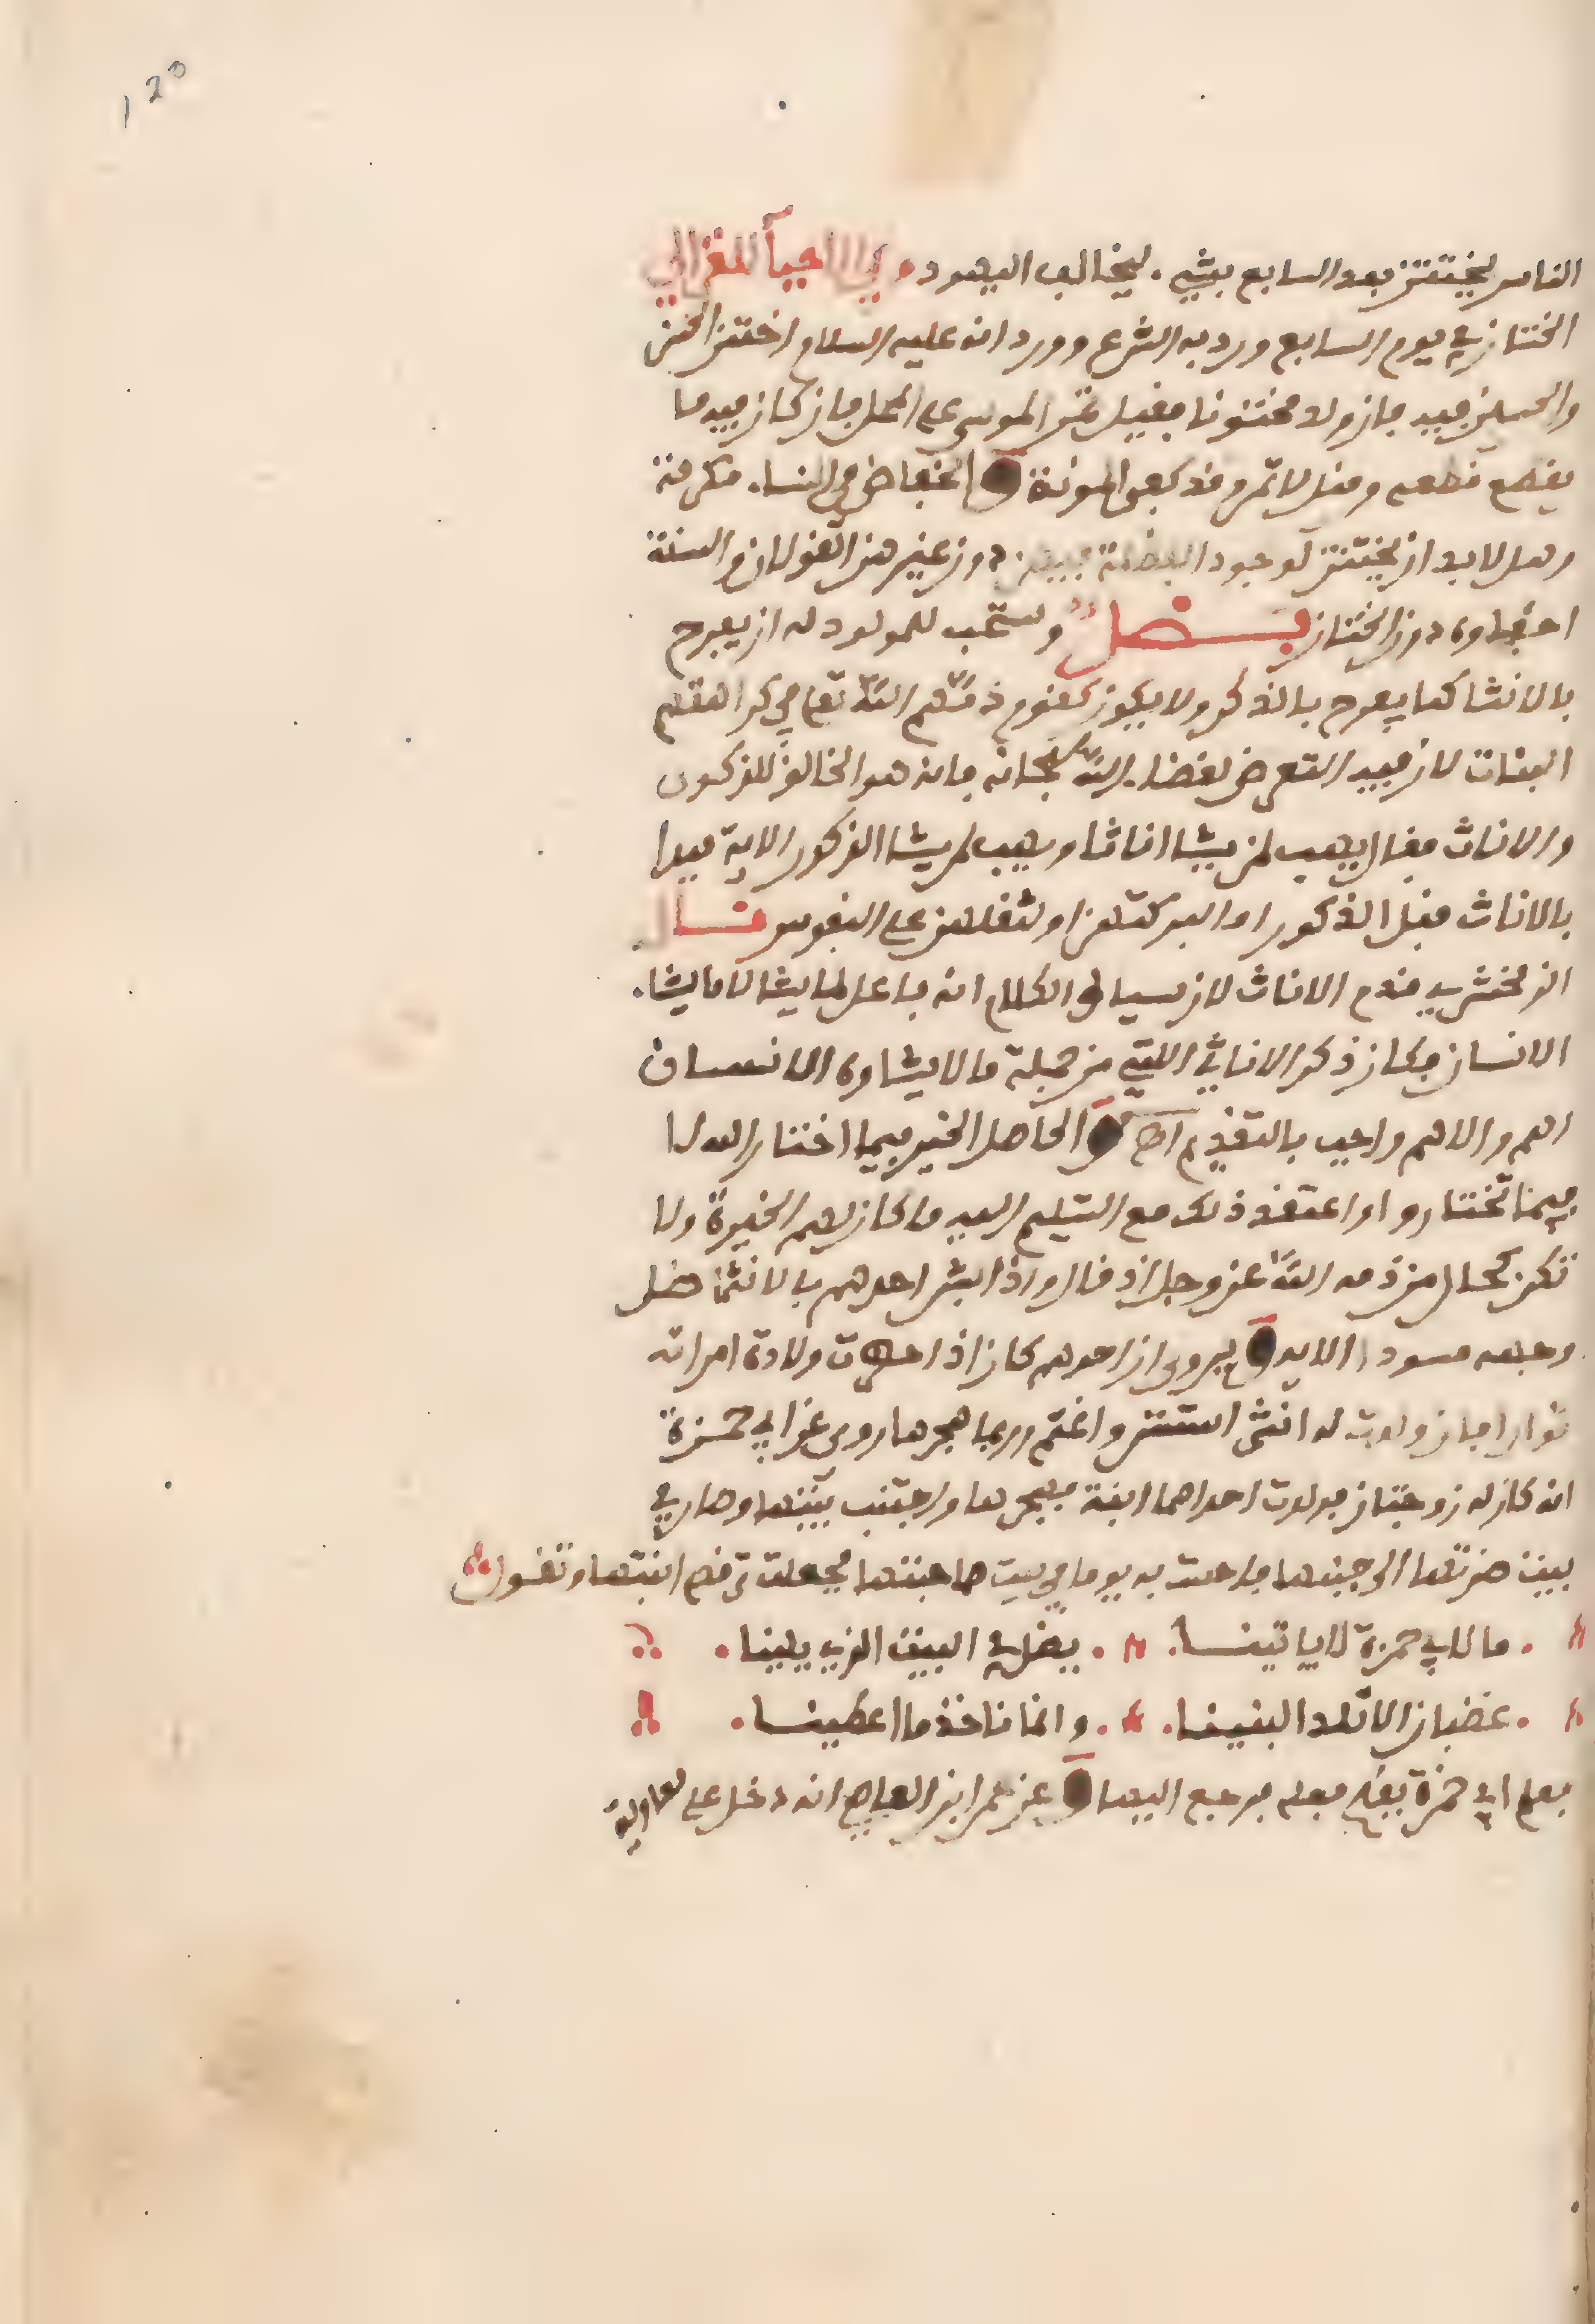 ١٢٥
الناس يختتن بعد السابع بشيء. ليخالف اليهود وفي الاحيا للغزالي
الختان في يوم السابع ورد به الشرع وورد انه عليه السلام اختتن الحسن
والحسين فيه فان ولد مختونا فقيل تمر الموسى على المحل فان كان فيه ما
يقطع قطعه وقيل لا تمر وقد كفى المونة و الخفاض في النساء مكرمة
وهل لا بد ان يختتن لوجود الفضلة فيهن دون غيرهن القولان والسنة
اخفاوه دون الختان فصل ويستحب للمولود له ان يفرح
بالانثا كما يفرح بالذكر ولا يكون كقوم ذمهم الله تعلى في كراهتهم
البنات لان فيه التعرض لغضب الله سبحانه فانه هو الخالق للذكور
والاناث فقال يهب لمن يشا اناثا ويهب لمن يشا الذكور الاية فبدا
بالاناث قبل الذكور اما لبركتهن او لثقلهن على النفوس قال
الزمخشري قدم الاناث لان سياق الكلام انه فاعل لما يشا لا ما يشا
الانسان فكان ذكر الاناث التي من جملة ما لا يشاوه الانسان
اهم والاهم واجب بالتقديم اهـ و الحاصل الخير فيما اختار الله لا
فيما تختاروا واعتقد ذلك مع التسليم اليه ما كان لهم الخيرة ولا
تكن كحال من ذمه الله عز وجل اذ قال واذا بشر احدهم بالانثى ظل
وجهه مسودا الاية و يروى ان احدهم كان اذا حضرت ولادة امراته
توارا فان ولدت له انثى استتر واغتم وربما هجرها روى عن ابي حمزة
انه كان له زوجتان فولدت احداهما ابنة فهجرها واجتنب بيتها وصار في
بيت ضرتها الى جنبها فاحست به يوما في بيت صاحبتها فجعلت ترقص ابنتها وتقول
ما لابي حمزة لا ياتينا. يظل في البيت الذي يلينا
غضبان الا نلد البنينا. وانما ناخذ ما اعطينا
فعلم ابي حمزة بقبح فعله فرجع اليها و عن عمر ابن العاص انه دخل على معاوية